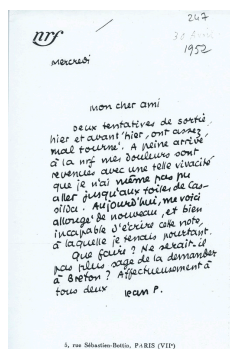 247
nrf
30 Avril
1952
Mercredi
Mon cher ami
Deux tentatives de sortie,
hier et avant'hier, ont assez
mal tourné. A peine arrivé
à la nrf mes douleurs sont
revenues avec une telle vivacité
que je n'ai même pas pu
aller jusqu'aux toiles de Cas-
silda. Aujourd'hui, me voici
allongé de nouveau, et bien
incapable d'écrire cette note,
à laquelle je tenais pourtant.
Que faire? Ne serait-il
pas plus sage de la demander
à Breton? Affectueusement à
tous deux
Jean P.
5, rue Sébastien-Bottin, PARIS (VIIe)